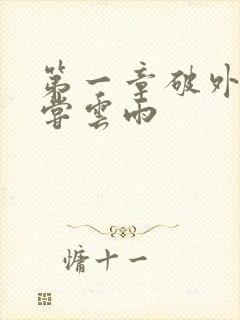 第一章破外
尝雲雨
慵十一